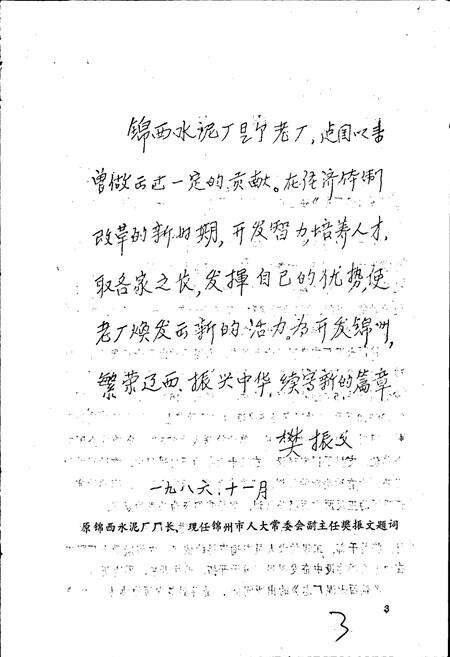 锦西水泥厂是个老厂,建国以来
曾做出过一定的贡献。在经济体制
改革的新时期,开发智力,培养人才,
取各家之长,发挥自己的优势,使
老厂焕发出新的活力。为开发锦州,
繁荣辽西、振兴中华,续写新的篇章
樊振文
一九八六.十一月
原锦西水泥厂厂长、现任锦州市人大常委会副主任樊振文题词
3
3